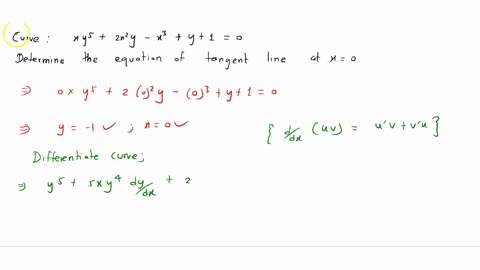 Curve : xy⁵ + 2x²y - x³ + y + 1 = 0
Determine the equation of tangent line at x = 0
⇒ 0 × y⁵ + 2 (0)²y - (0)³ + y + 1 = 0
⇒ y = -1 ✓ ; x = 0 ✓ [ d/dx (uv) = u'v + v'u ]
Differentiate curve;
⇒ y⁵ + 5xy⁴ dy/dx + 2